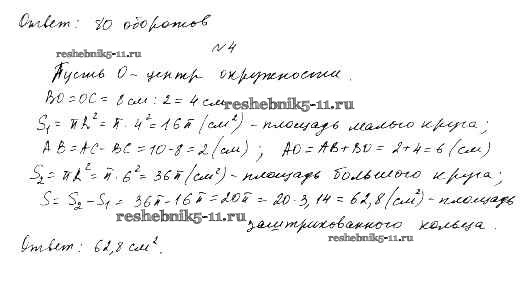 Ответ: 80 оборотов
№4
reshebnik5-11.ru
Пусть О - центр окружности.
ВО = ОС = 8 см : 2 = 4 см
reshebnik5-11.ru
S₁ = πR² = π · 4² = 16π (см²) - площадь малого круга;
АВ = АС - ВС = 10 - 8 = 2 (см); АО = АВ + ВО = 2 + 4 = 6 (см)
S₂ = πR² = π · 6² = 36π (см²) - площадь большого круга;
S = S₂ - S₁ = 36π - 16π = 20π = 20 · 3,14 = 62,8 (см²) - площадь
reshebnik5-11.ru
заштрихованного кольца.
reshebnik5-11.ru
Ответ: 62,8 см².